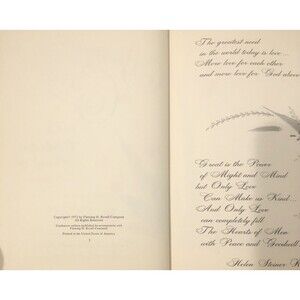 Copyright© 1972 by Fleming H. Revell Company
All Rights Reserved
Printed in the United States of America
The greatest need
in the world today is love...
More love for each other
and more love for God above
Great is the Power
of Might and Mind
but Only Love
Can Make us Kind...
And Only Love
can completely fill
The Hearts of Men
with Peace and Goodwill
Helen Steiner R